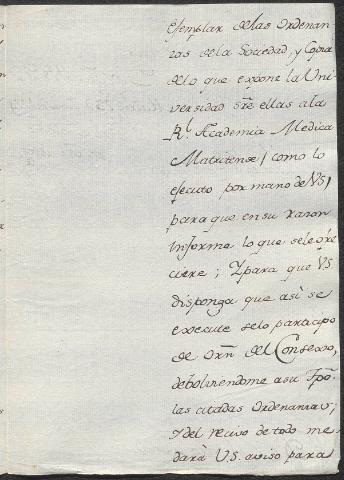 exemplar de las Ordenan
zas de la Sociedad, y Copia
de lo que expone la Uni
versidad sre ellas a la
Rl. Academia Medica
Matritense (como lo
executo por mano de VS)
para que en su razon
Informe lo que se le ofre
ciere; Y para que VS.
disponga que asi se
execute se lo participo
de orn del Consexo,
debolbiendome a su tpo.
las citadas Ordenanzas;
Y del recivo de todo me
dará V.S. aviso para